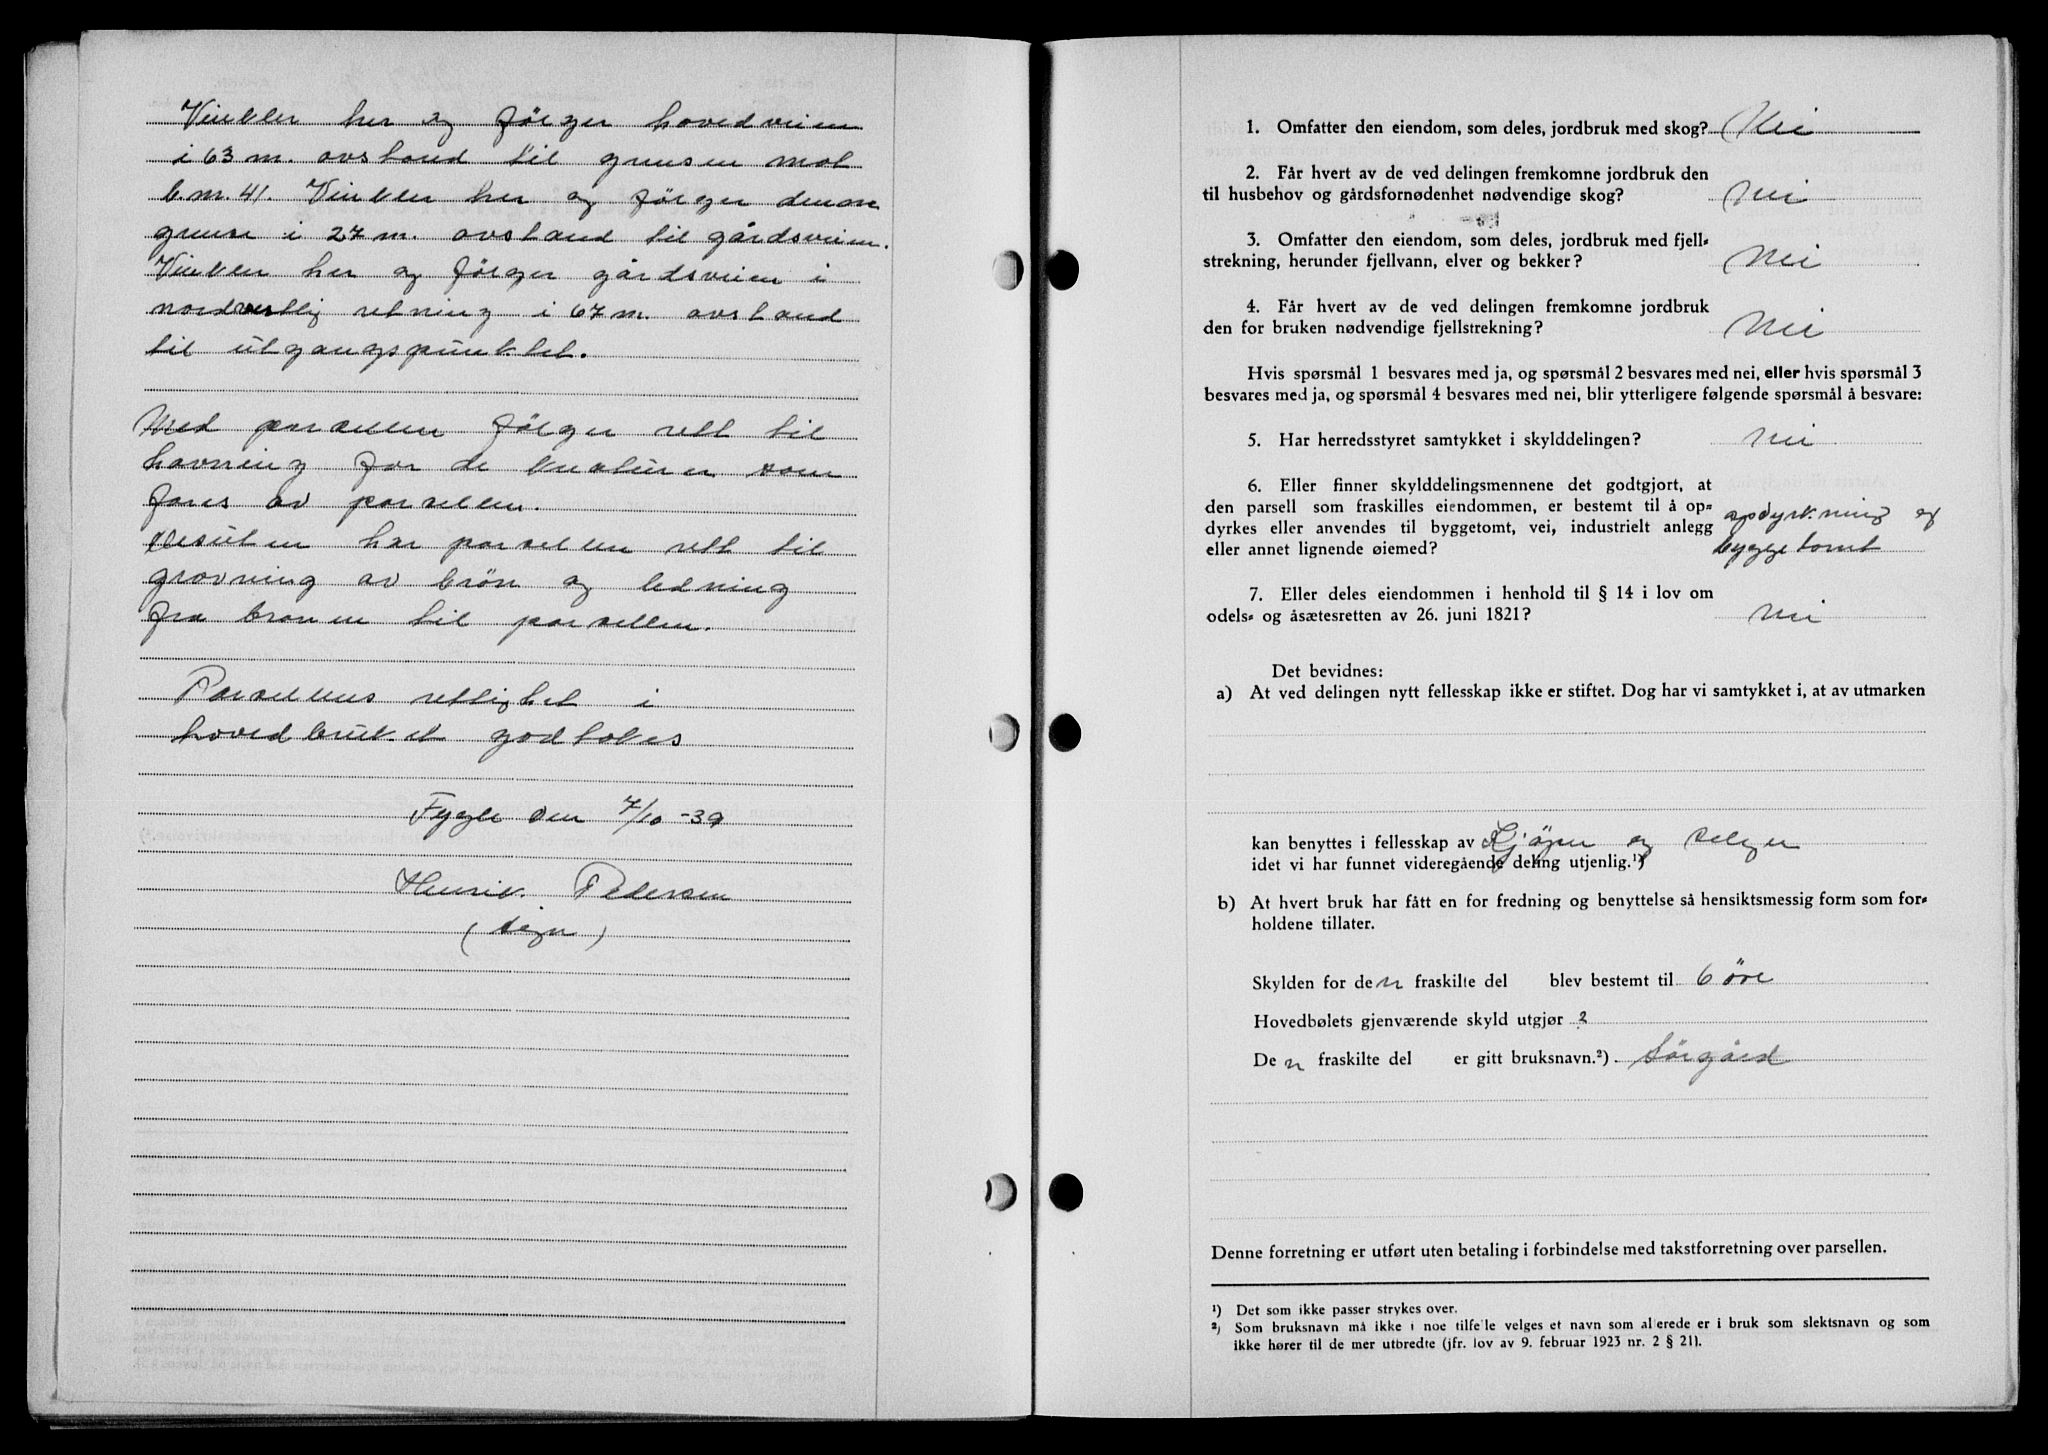 Vinkler her og følger hovedveien
i 63 m. avstand til grensen mot
b.m. 41. Vinkler her og følger denne
grense i 27 m. avstand til gårdsveien.
Vinkler her og følger gårdsveien i
nordvestlig retning i 67 m. avstand
til utgangspunktet.
Med parsellen følger rett til
havning for de kreaturer som
føres av parsellen.
Desuten har parsellen rett til
gravning av brøn og ledning
fra brønen til parsellen.
Parsellens rettighet i
hovedbruket godtokes
Fygle den 7/10 -39
Henrik Pedersen
(sign)
1. Omfatter den eiendom, som deles, jordbruk med skog? Nei
2. Får hvert av de ved delingen fremkomne jordbruk den
til husbehov og gårdsfornødenhet nødvendige skog? Nei
3. Omfatter den eiendom, som deles, jordbruk med fjell-
strekning, herunder fjellvann, elver og bekker? Nei
4. Får hvert av de ved delingen fremkomne jordbruk
den for bruken nødvendige fjellstrekning? Nei
Hvis spørsmål 1 besvares med ja, og spørsmål 2 besvares med nei, eller hvis spørsmål 3
besvares med ja, og spørsmål 4 besvares med nei, blir ytterligere følgende spørsmål å besvare:
5. Har herredsstyret samtykket i skylddelingen? nei
6. Eller finner skylddelingsmennene det godtgjort, at
den parsell som fraskilles eiendommen, er bestemt til å op-
dyrkes eller anvendes til byggetomt, vei, industrielt anlegg
eller annet lignende øiemed? opdyrkning og
byggetomt
7. Eller deles eiendommen i henhold til § 14 i lov om
odels- og åsætesretten av 26. juni 1821? nei
Det bevidnes:
a) At ved delingen nytt fellesskap ikke er stiftet. Dog har vi samtykket i, at av utmarken
kan benyttes i fellesskap av Kjøper og selger
idet vi har funnet videregående deling utjenlig.¹)
b) At hvert bruk har fått en for fredning og benyttelse så hensiktsmessig form som for-
holdene tillater.
Skylden for den fraskilte del blev bestemt til 6 öre
Hovedbølets gjenværende skyld utgjør 2
Den fraskilte del er gitt bruksnavn.²) Sörgård
Denne forretning er utført uten betaling i forbindelse med takstforretning over parsellen.
¹) Det som ikke passer strykes over.
²) Som bruksnavn må ikke i noe tilfelle velges et navn som allerede er i bruk som slektsnavn og som
ikke hører til de mer utbredte (jfr. lov av 9. februar 1923 nr. 2 § 21).